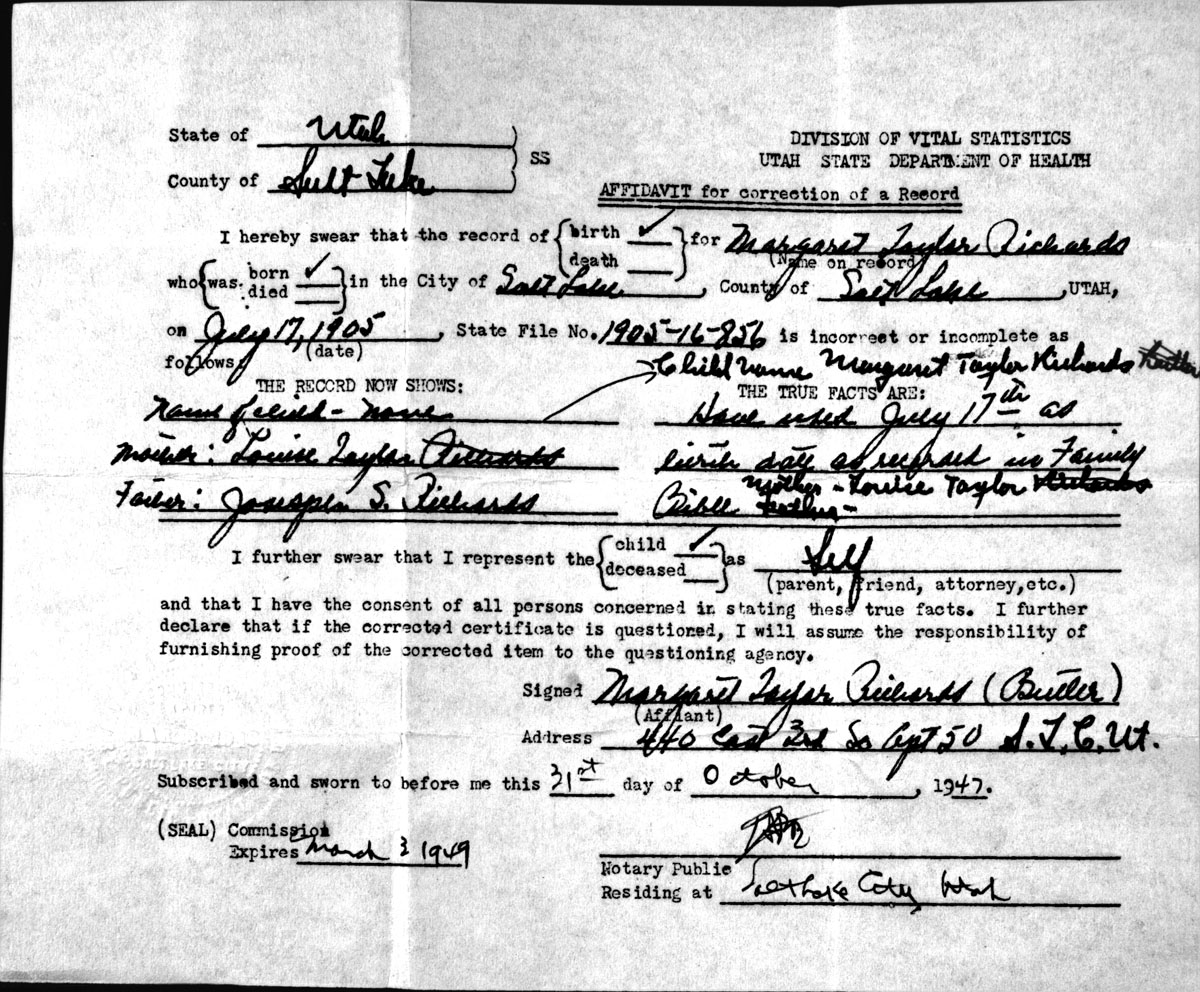 State of Utah
County of Salt Lake
SS
DIVISION OF VITAL STATISTICS
UTAH STATE DEPARTMENT OF HEALTH
AFFIDAVIT for correction of a Record
I hereby swear that the record of birth ✓ for Margaret Taylor Richards
death (Name on record)
who was born ✓ in the City of Salt Lake, County of Salt Lake, UTAH,
died
on July 17, 1905, State File No. 1905-16-856 is incorrect or incomplete as
follows (date)
Child name Margaret Taylor Richards
THE RECORD NOW SHOWS: THE TRUE FACTS ARE:
Name of child - none Have used July 17th as
Mother: Louise Taylor Richards birth date as recorded in Family
Father: Joseph S. Richards Bible Mother - Louise Taylor Richards
Father -
I further swear that I represent the child ✓ as Self
deceased (parent, friend, attorney, etc.)
and that I have the consent of all persons concerned in stating these true facts. I further
declare that if the corrected certificate is questioned, I will assume the responsibility of
furnishing proof of the corrected item to the questioning agency.
Signed Margaret Taylor Richards (Butler)
(Affiant)
Address 440 East 3rd So Apt 50 S.L.C. Ut.
Subscribed and sworn to before me this 31st day of October, 1947.
(SEAL) Commission
Expires March 3 1949
Notary Public
Residing at Salt Lake City, Utah